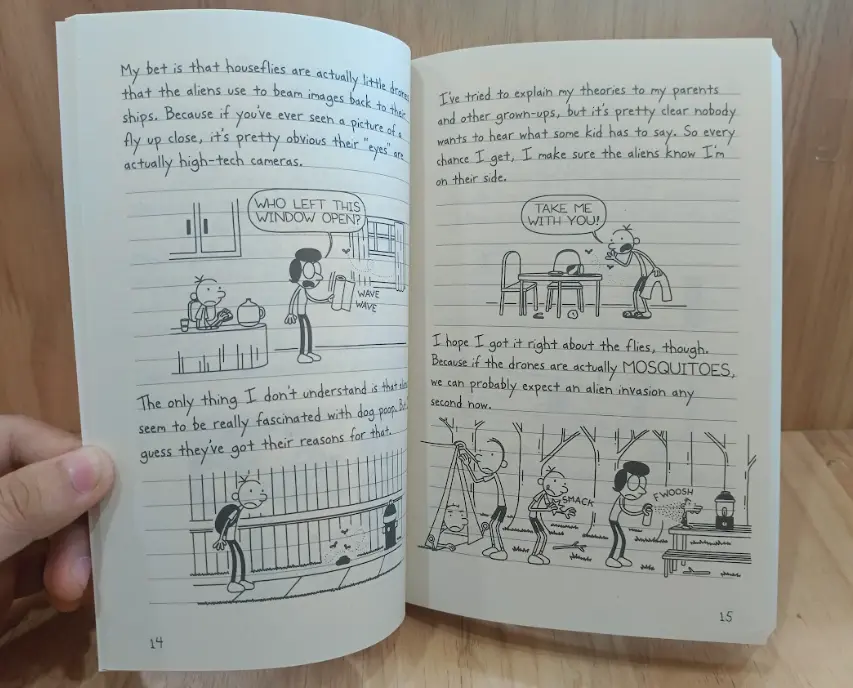 My bet is that houseflies are actually little drones
that the aliens use to beam images back to their
ships. Because if you've ever seen a picture of a
fly up close, it's pretty obvious their "eyes" are
actually high-tech cameras.
WHO LEFT THIS
WINDOW OPEN?
WAVE
WAVE
The only thing I don't understand is that
seem to be really fascinated with dog poop.
guess they've got their reasons for that.
14
I've tried to explain my theories to my parents
and other grown-ups, but it's pretty clear nobody
wants to hear what some kid has to say. So every
chance I get, I make sure the aliens know I'm
on their side.
TAKE ME
WITH YOU!
I hope I got it right about the flies, though.
Because if the drones are actually MOSQUITOES,
we can probably expect an alien invasion any
second now.
SMACK
FWOOSH
15